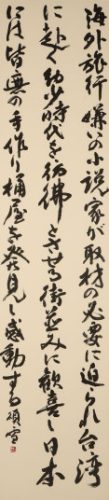 海外旅行嫌いの小説家が取材の必要に迫られ台湾
に赴く幼少時代を彷彿とさせる街並みに歓喜し日本
には皆無の手作り桶屋を発見し感動する